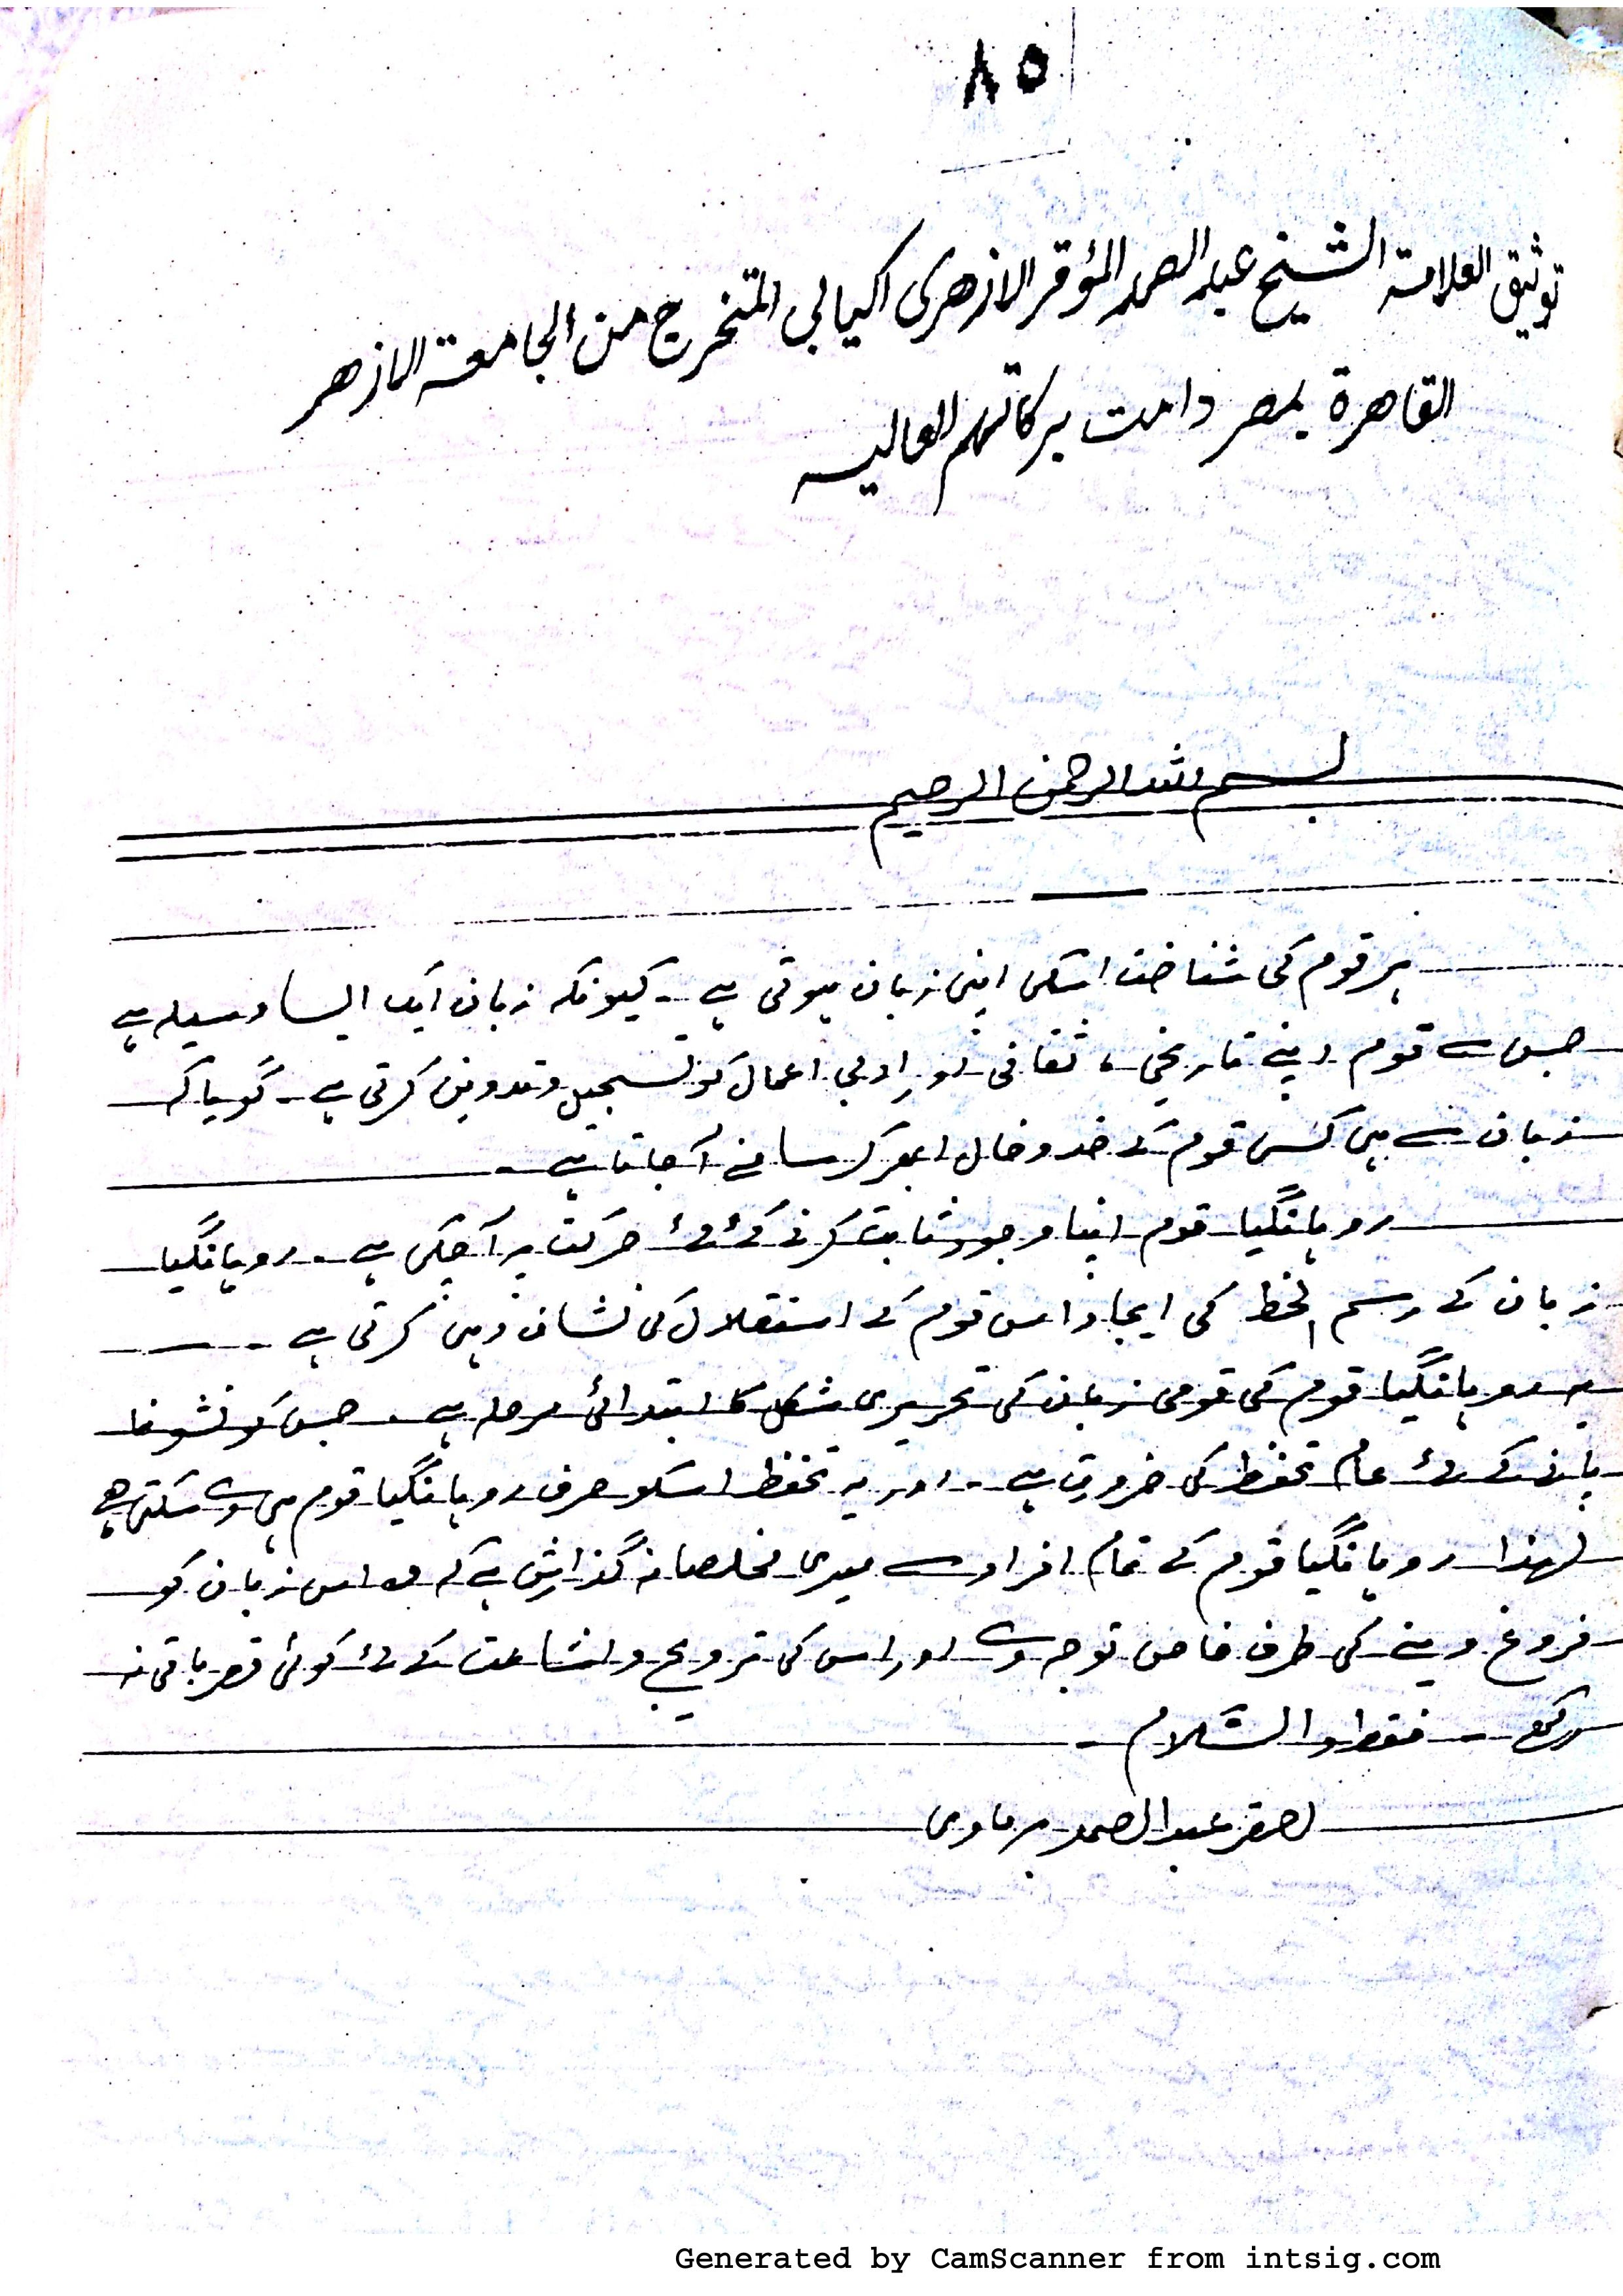 ٨٥
توثيق العلامة الشيخ عبد الصمد المؤقر الازهری اکيابی المتخرج من الجامعة الازهر
القاهرة بمصر دامت برکاتهم العاليه
بسم الله الرحمن الرحيم
ہر قوم کی شناخت اسکی اپنی زبان ہوتی ہے ۔ کیونکہ زبان ایک ایسا وسیلہ ہے
جس سے قوم اپنے تاریخی ، ثقافی اور ادبی اعمال کو تسجیل وتدوین کرتی ہے ۔ گویا کہ
زبان سے ہی کسی قوم کے خدوخال ابھر کر سامنے آجاتا ہے ۔
روہانگیا قوم اپنا وجود ثابت کرنے کے لئے حرکت پر آچکی ہے ۔ روہانگیا
زبان کے رسم الخط کی ایجاد اس قوم کے استقلال کی نشان دہی کرتی ہے ۔
یہ روہانگیا قوم کی قومی زبان کی تحریری شکل کا ابتدائی مرحلہ ہے ۔ جس کو نشونما
پانے کے لئے عام تحفظ کی ضرورت ہے ۔ اور یہ تحفظ اسکو صرف روہانگیا قوم ہی دے سکتی ہے
لہذا روہانگیا قوم کے تمام افراد سے میری مخلصانہ گذارش ہے کہ وہ اس زبان کو
فروغ دینے کی طرف خاص توجہ دے اور اس کی ترویج واشاعت کے لئے کوئی قصر باقی نہ
رکھے ۔ فقط والسّلام ۔
احقر عبد الصمد برماوی
Generated by CamScanner from intsig.com